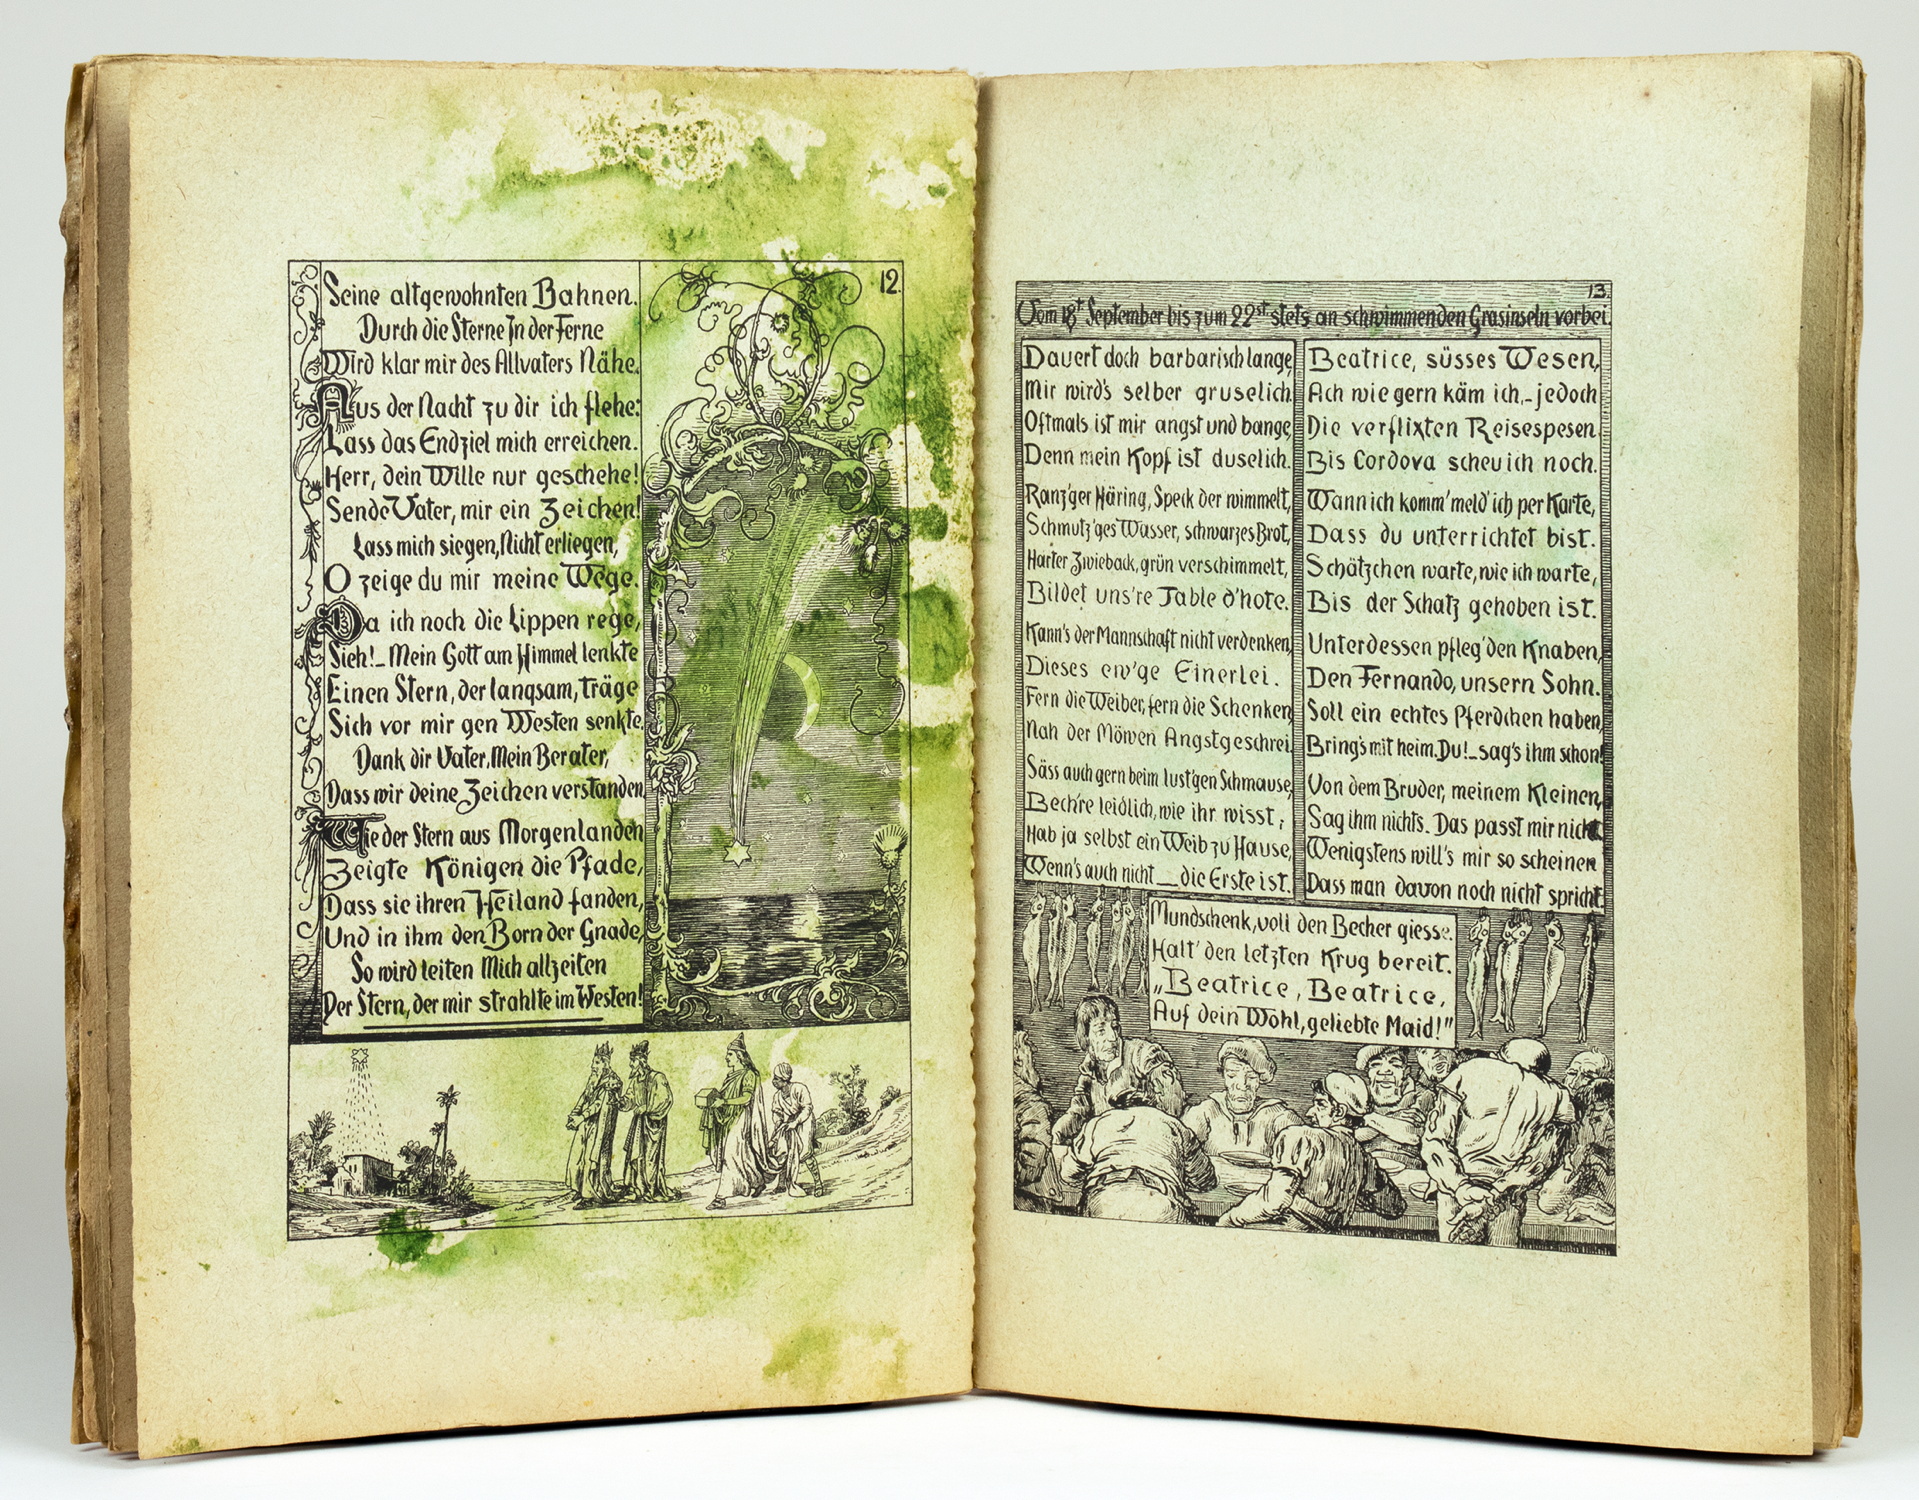 12.
Seine altgewohnten Bahnen.
Durch die Sterne In der Ferne
Wird klar mir des Allvaters Nähe.
Aus der Nacht zu dir ich flehe:
Lass das Endziel mich erreichen.
Herr, dein Wille nur geschehe!
Sende Vater, mir ein Zeichen!
Lass mich siegen, Nicht erliegen,
O zeige du mir meine Wege.
Da ich noch die Lippen rege,
Sieh!_ Mein Gott am Himmel lenkte
Einen Stern, der langsam, träge
Sich vor mir gen Westen senkte.
Dank dir Vater, Mein Berater,
Dass wir deine Zeichen verstanden
Wie der Stern aus Morgenlanden
Zeigte Königen die Pfade,
Dass sie ihren Heiland fanden,
Und in ihm den Born der Gnade,
So wird leiten Mich allzeiten
Der Stern, der mir strahlte im Westen!
13.
Vom 18t September bis zum 22st stets an schwimmenden Grasinseln vorbei.
Dauert doch barbarisch lange,
Mir wird's selber gruselich.
Oftmals ist mir angst und bange,
Denn mein Kopf ist duselich.
Ranz'ger Häring, Speck der wimmelt,
Schmutz'ges Wasser, schwarzes Brot,
Harter Zwieback, grün verschimmelt,
Bildet uns're Table d'hote.
Kann's der Mannschaft nicht verdenken,
Dieses ew'ge Einerlei.
Fern die Weiber, fern die Schenken,
Nah der Möwen Angstgeschrei.
Säss auch gern beim lust'gen Schmause,
Bech're leidlich, wie ihr wisst,
Hab ja selbst ein Weib zu Hause,
Wenn's auch nicht _ die Erste ist.
Beatrice, süsses Wesen,
Ach wie gern käm ich,_ jedoch
Die verflixten Reisespesen
Bis Cordova scheu ich noch.
Wann ich komm' meld' ich per Karte,
Dass du unterrichtet bist.
Schätzchen warte, wie ich warte,
Bis der Schatz gehoben ist.
Unterdessen pfleg' den Knaben,
Den Fernando, unsern Sohn.
Soll ein echtes Pferdchen haben,
Bring's mit heim. Du!_ sag's ihm schon!
Von dem Bruder, meinem Kleinen,
Sag ihm nichts. Das passt mir nicht.
Wenigstens will's mir so scheinen
Dass man davon noch nicht spricht.
Mundschenk, voll den Becher giesse.
Halt' den letzten Krug bereit.
„Beatrice, Beatrice,
Auf dein Wohl, geliebte Maid!"